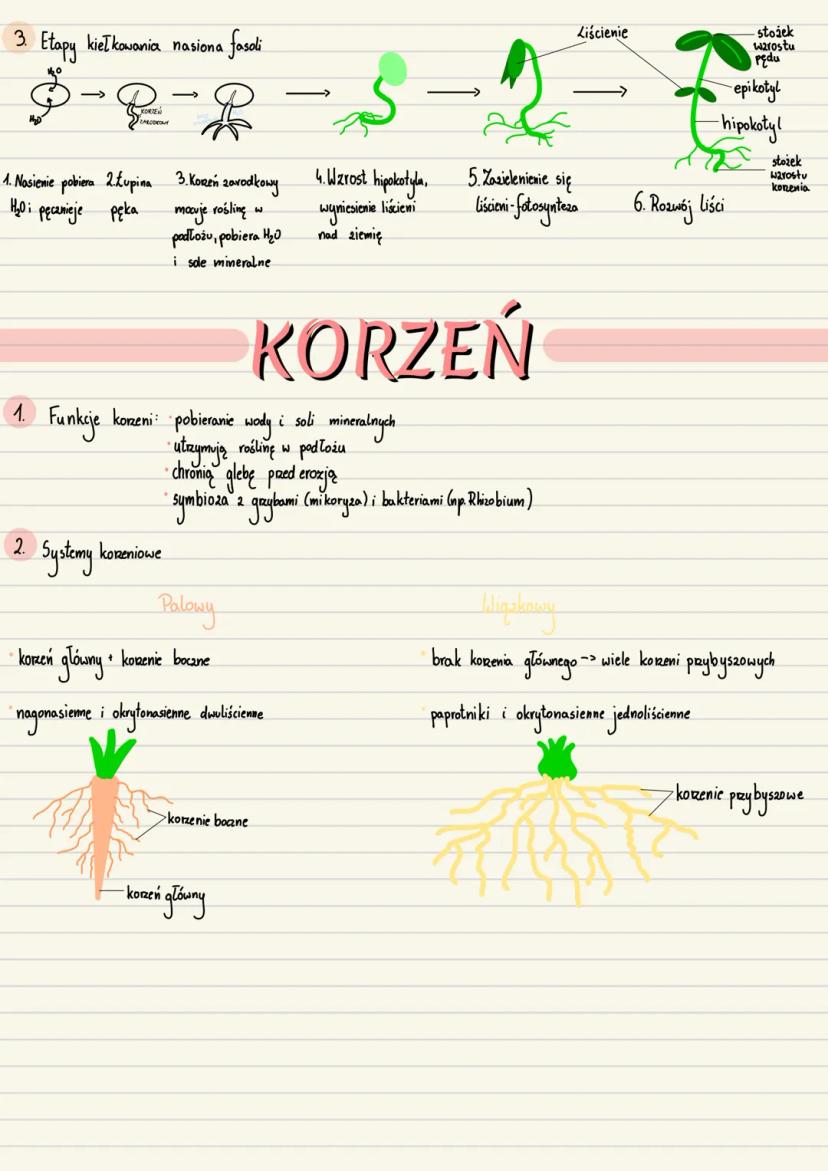 3. Etapy kiełkowania nasiona fasoli
H₂O
H₂O
KORZEŃ
ZARODKOWY
Liścienie
stożek
wzrostu
pędu
epikotyl
hipokotyl
stożek
wzrostu
korzenia
1. Nasienie pobiera
H₂O i pęcznieje
2. Łupina
pęka
3. Korzeń zarodkowy
mocuje roślinę w
podłożu, pobiera H₂O
i sole mineralne
4. Wzrost hipokotylu,
wyniesienie liścieni
nad ziemię
5. Zazielenienie się
liścieni - fotosynteza
6. Rozwój liści
KORZEŃ
1. Funkcje korzeni: • pobieranie wody i soli mineralnych
• utrzymują roślinę w podłożu
• chronią glebę przed erozją
• symbioza z grzybami (mikoryza) i bakteriami (np. Rhizobium)
2. Systemy korzeniowe
Palowy
• korzeń główny + korzenie boczne
• nagonasienne i okrytonasienne dwuliścienne
korzenie boczne
korzeń główny
Wiązkowy
• brak korzenia głównego -> wiele korzeni przybyszowych
• paprotniki i okrytonasienne jednoliścienne
korzenie przybyszowe